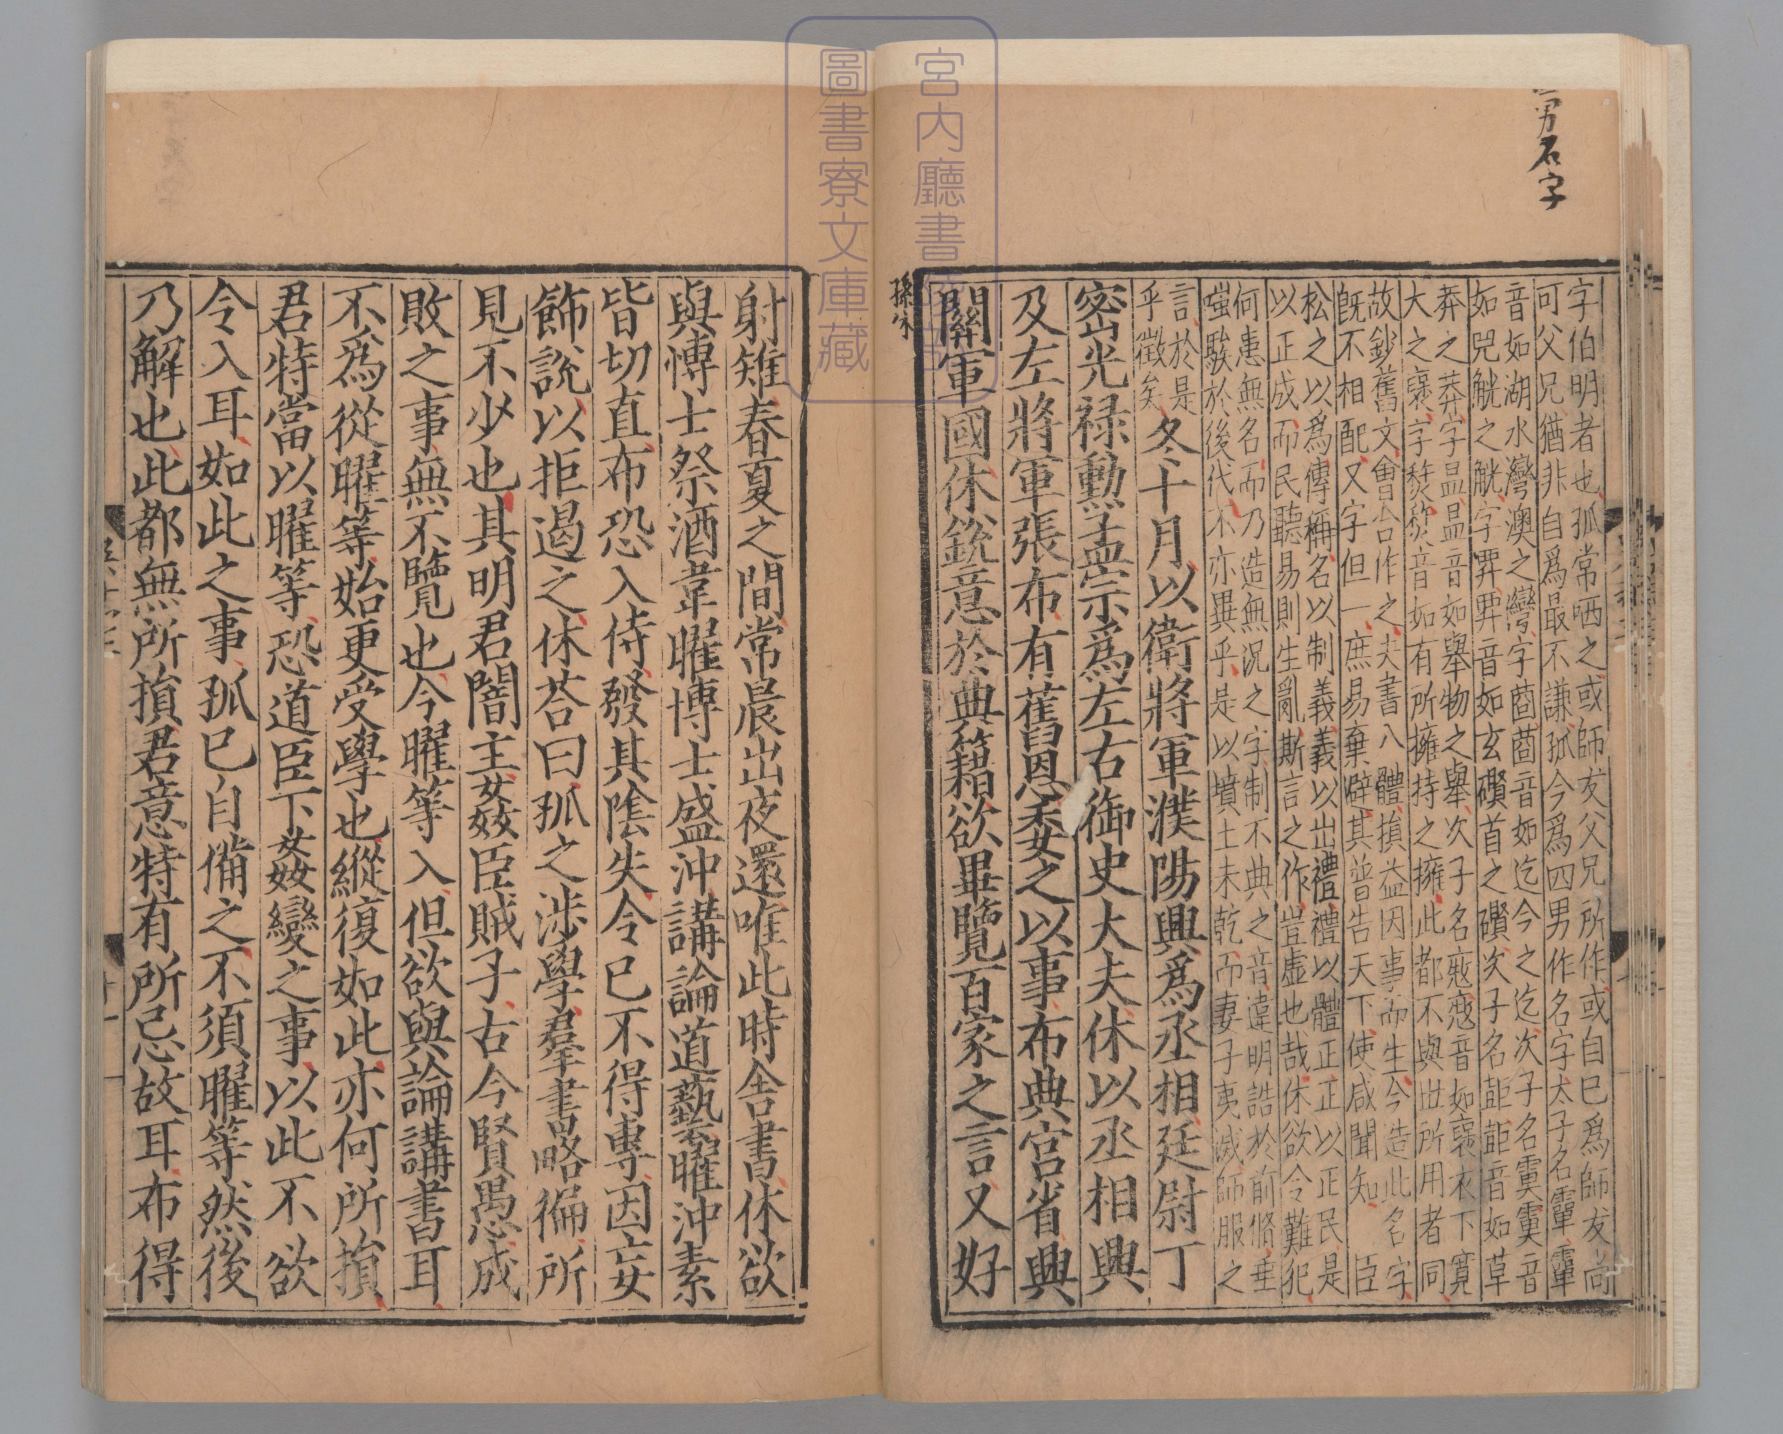 男名字
字伯明者也孤常哂之或師友父兄所作或自已爲師友尚
可父兄猶非自爲最不謙孤今爲四男作名字太子名𩅦𩅦
音如湖水灣澳之灣字莔莔音如迄今之迄次子名𩃙𩃙音
如兕觥之觥字𢍏𢍏音如玄礥首之礥次子名壾壾音如草
莽之莽字昷昷音如舉物之舉次子名寇寇音如褒衣下寬
大之褒字㷏㷏音如有所擁持之擁此都不與世所用者同
故鈔舊文會合作之夫書八體損益因事而生今造此名字
既不相配又字但一庶易棄避其普告天下使咸聞知 臣
松之以爲傳稱名以制義義以出禮禮以體正正以正民是
以正成而民聽易則生亂斯言之作豈虛也哉休欲令難犯
何患無名而乃造無況之字制不典之音違明誥於前脩垂
嗤騃於後代不亦異乎是以墳土未乾而妻子夷滅師服之
言於是
乎徵矣
冬十月以衛將軍濮陽興爲丞相廷尉丁
密光禄勳孟宗爲左右御史大夫休以丞相興
及左將軍張布有舊恩委之以事布典宮省興
關軍國休銳意於典籍欲畢覽百家之言又好
孫休
射雉春夏之間常晨出夜還唯此時舍書休欲
與博士祭酒韋曜博士盛沖講論道藝曜沖素
皆切直布恐入侍發其陰失令已不得專因妄
飾說以拒遏之休荅曰孤之涉學羣書略徧所
見不少也其明君闇主姦臣賊子古今賢愚成
敗之事無不覽也今曜等入但欲與論講書耳
不爲從曜等始更受學也縱復如此亦何所損
君特當以曜等恐道臣下姦變之事以此不欲
令入耳如此之事孤已自備之不須曜等然後
乃解也此都無所損君意特有所忌故耳布得
宮内廳書陵部
圖書寮文庫藏